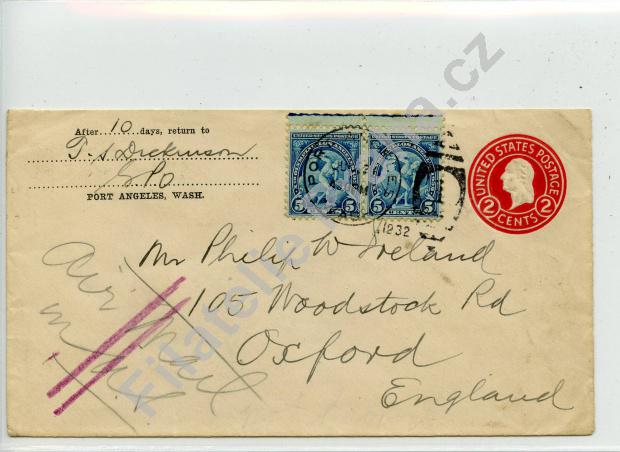 After 10 days, return to
T. S. Dickinson
G.P.O
PORT ANGELES, WASH.
UNITED STATES POSTAGE
5 5
UNITED STATES POSTAGE
5 5
1232
UNITED STATES POSTAGE
2 CENTS 2
Mr Philip W Ireland
105 Woodstock Rd
Oxford
England
Air Mail
in